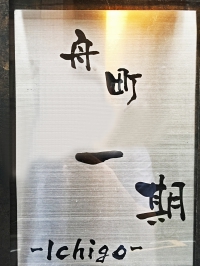 舟町
一期
-Ichigo-